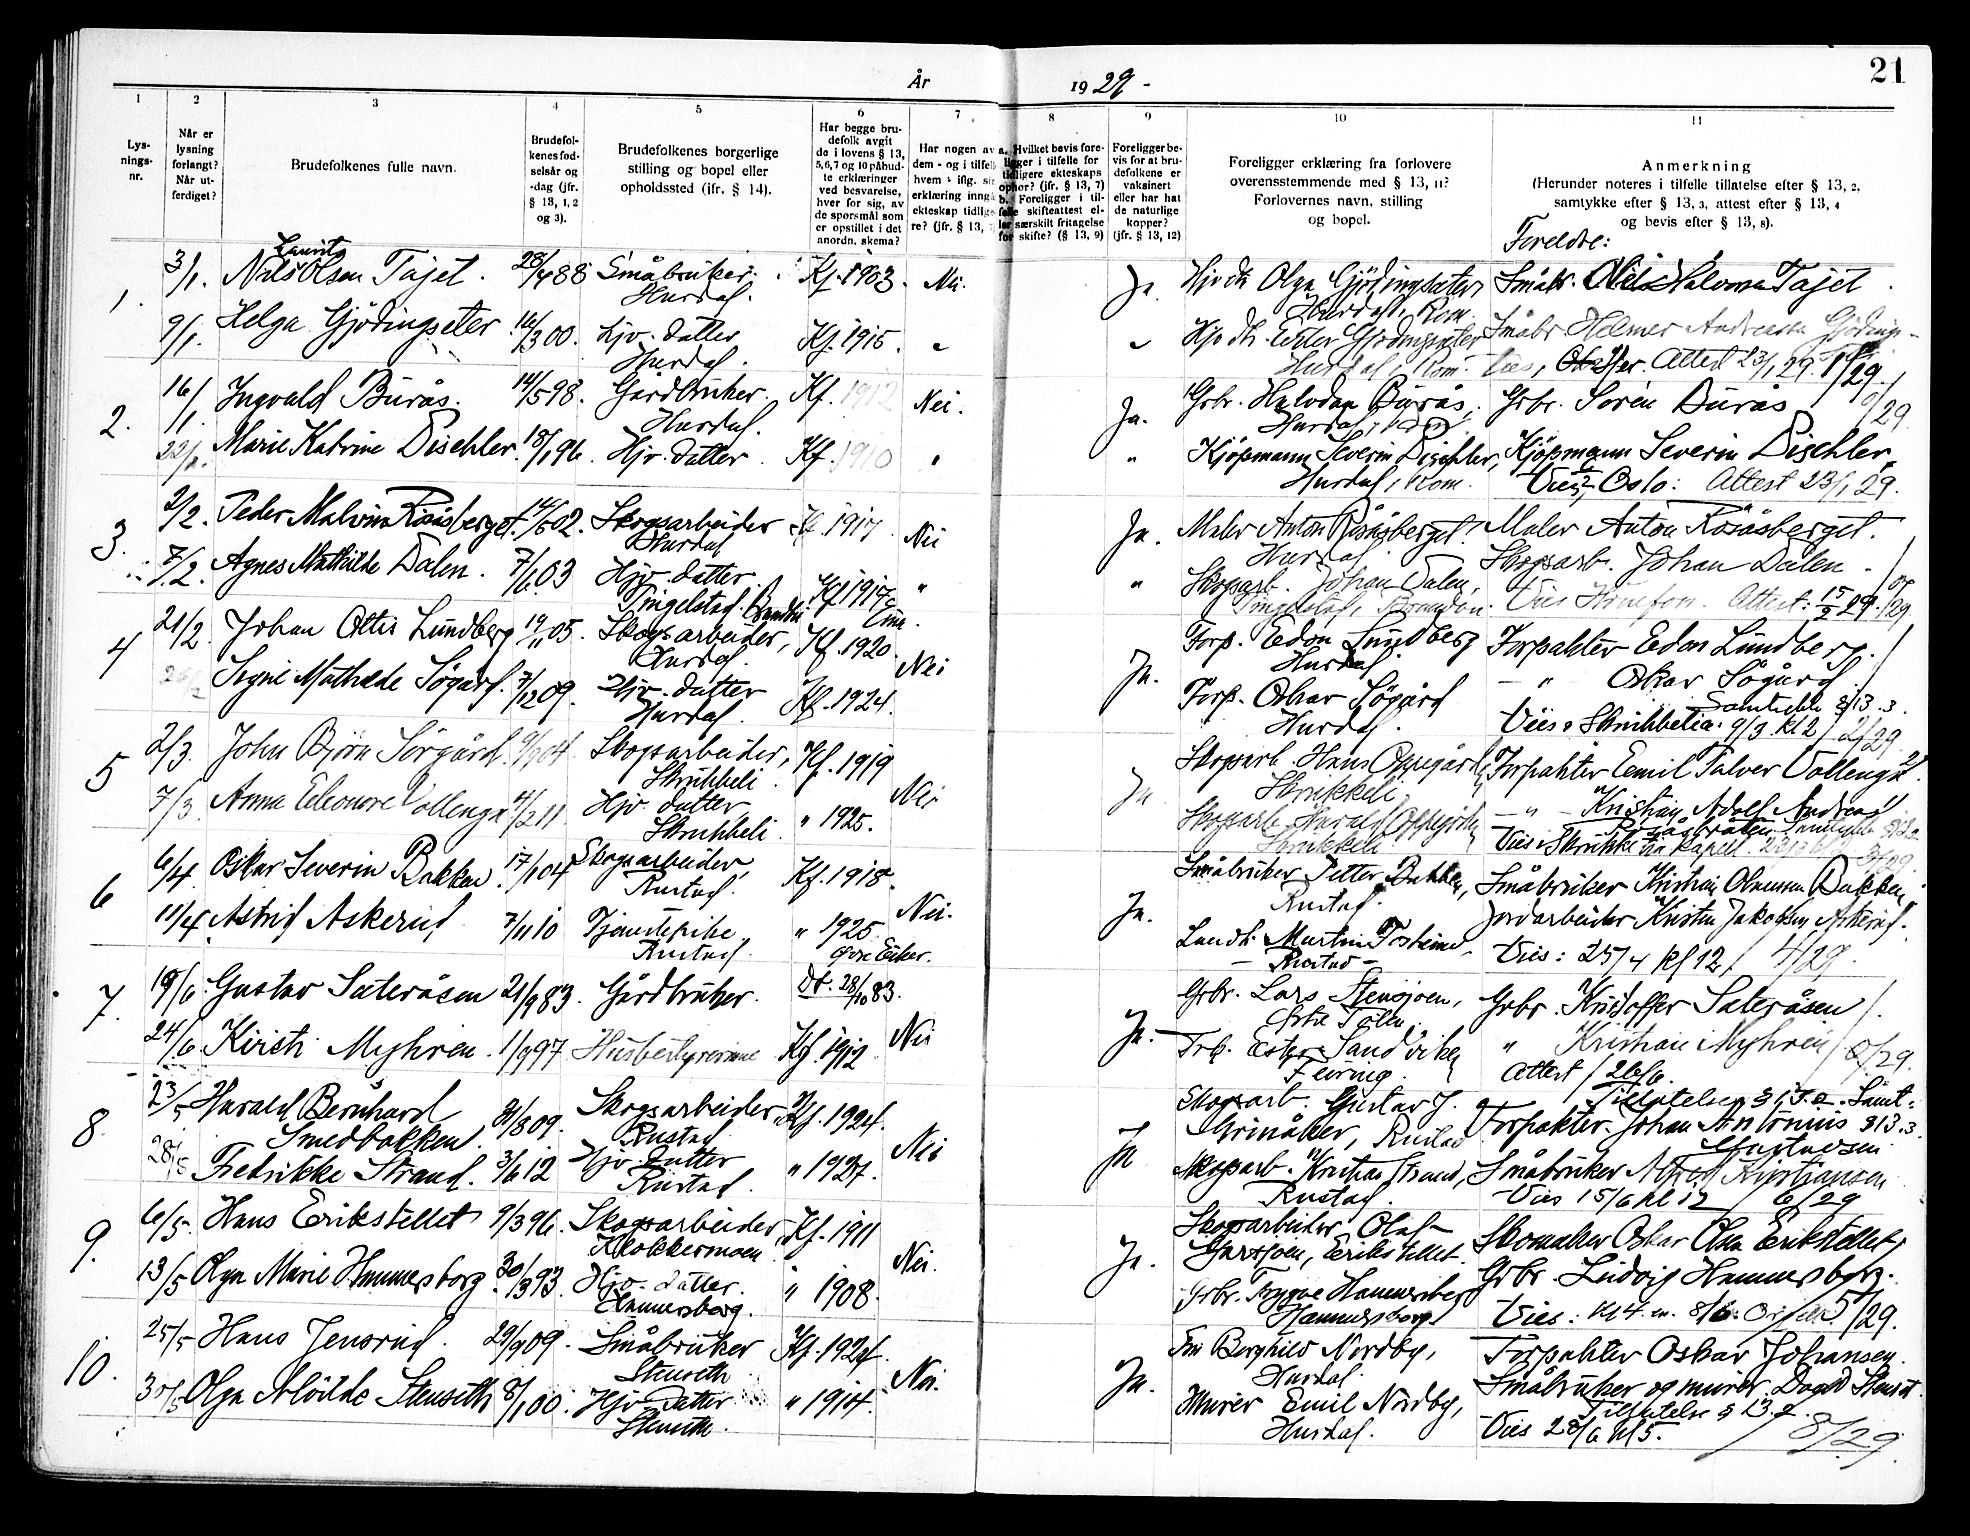 År 1929 -
21
1 2 3 4 5 6 7 8 9 10 11
Lys-
nings-
nr.
Når er
lysning
forlangt?
Når ut-
ferdiget?
Brudefolkenes fulle navn.
Brudefol-
kenes fød-
selsår og
-dag (jfr.
§ 13, 1, 2
og 3).
Brudefolkenes borgerlige
stilling og bopel eller
opholdssted (jfr. § 14).
Har begge bru-
defolk avgit
de i lovens § 13,
5,6,7 og 10 påbud-
te erklæringer
ved besvarelse,
hver for sig, av
de spørsmål som
er opstillet i det
anordn. skema?
Har nogen av
dem - og i tilfelle
hvem
erklæring inngå
ekteskap tidlige-
re? (jfr. § 13,
a. Hvilket bevis fore-
ligger i tilfelle for
tidligere ekteskaps
ophør? (jfr. § 13, 7)
b. Foreligger i til-
felle skifteattest el-
ler særskilt fritagelse
for skifte? (§ 13, 9)
Foreligger be-
vis for at bru-
defolkene er
vaksinert
eller har hat
de naturlige
kopper?
(jfr. § 13, 12)
Foreligger erklæring fra forlovere
overensstemmende med § 13, 11?
Forlovernes navn, stilling
og bopel.
Anmerkning
(Herunder noteres i tilfelle tillatelse efter § 13, 2,
samtykke efter § 13, 3, attest efter § 13, 4
og bevis efter § 13, 8).
Foreldre:
1. 3/1. Nils Laurits Olsen Tajet. 28/4 88 Småbruker. Kf. 1903. Nei. Ja Hjv dtr Olga Gjødingseter, Småbr. Halvorsen Tajet.
Hurdal. Hurdal, Rom.
9/1. Helga Gjødingseter 16/3 00. Hjv. datter Kf. 1915. " " Småbr. Helmer Andreassen Gjødings-
Hurdal. Attest 23/1 29. 1/29.
2. 16/1 Ingvald Burås. 14/5 98. Gårdbruker. Kf. 1912 Nei. Ja. Grbr. Halvdan Burås, Grbr. Søren Burås
Hurdal. /29
22/1. Marie Katrine Dischler. 18/1 96. Hjv. datter Kf. 1910 " " Kjøpmann Severin Dischler, Kjøpmann Severin Dischler.
Hurdal, Rom. Vies i Oslo: Attest 23/1 29.
3. 2/2. Peder Malvin Røsåsberget. 14/5 02. Skogsarbeider Kf. 1917 Nei Ja. Maler Anton Røsåsberget. Maler Anton Røsåsberget.
Hurdal Hurdal.
7/2. Agnes Mathilde Dalen. 7/6 03 Hjv. datter Kf 1917 " " Skogsarb. Johan Dalen, Skogsarb. Johan Dalen
Tingelstad. Brandbu Tingelstad, Brandbu. Vies Hønefoss. Attest: 15/2 29. /29
4 21/2. Johan Otto Lundberg 19/11 05. Skogsarbeider, Kf. 1920. Nei Ja. Forp. Edon Lundberg Forpakter Edon Lundberg.
Hurdal. Hurdal.
26/2 Signe Mathilde Søgård. 7/12 09. Hjv. datter Kf. 1924. Forp. Oskar Søgård — " — Oskar Søgård
Hurdal. Hurdal. Samtykke § 13. 3.
Vies i Skrukkelia. 9/3 kl 2 / 2/29
5 2/3. John Bjørn Sørgård. 9/9 04. Skogsarbeider, Kf. 1919 Nei Ja Skogsarb. Hans Oppegård Forpakter Emil Talver Vollenga
Skrukkeli. Skrukkeli
7/3 Anna Eleonore Vollenga 4/2 11 Hjv. datter " 1925. Skogsarb. Harald Oppegård — " — Kristian Adolf Andreas
Skrukkeli Skrukkeli Samtykke
Vies i Skrukkelia kapell. 23/3 3/29
6 6/4 Oskar Severin Bakken. 17/1 04 Skogsarbeider, Kf. 1918. Nei. Ja. Småbruker Petter Bakken, Småbruker Kristian Olaussen Bakken
Rustad. Rustad.
11/4 Astrid Askerud 7/11 10 Tjenestepike " 1925. Landh. Martin Jordarbeider Kristen Jakobsen Askerud.
Rustad. Øvre Eiker. — Rustad — Vies: 25/4 kl 12 / 4/29.
7. 19/6 Gustav Sæteråsen 21/9 83. Gårdbruker. Dt. 28/10 83. Nei Ja. Grbr. Lars Stensjøen, Grbr. Kristoffer Sæteråsen
24/6 Kirsti Myhren. 1/9 97 Husbestyrerinne Kf. 1912 Frk. Ester Sandviken " Kristian Myhren
Feiring. Attest / 26/6. 8/29.
8. 23/5 Harald Bernhard 31/8 09. Skogsarbeider Kf. 1924. Nei Ja Skogsarb. Gustav J. Tillatelse § 13. 2. Samt:
Smedbakken Rustad Grinåker, Rustad Forpakter Johan Antonius § 13. 3.
Gustavsen
28/5 Fredrikke Strand. 3/6 12 Hjv. datter " 1927. Skogsarb. Kristian Strand, Småbruker Alfred Kristiansen
Rustad. Rustad. Vies 15/6 kl 12 6/29
9. 6/5. Hans Erikstellet 9/3 96. Skogsarbeider Kf. 1911 Nei. Ja. Skogsarbeider Olaf Skomaker Oskar Olsen Erikstellet
Klokkermoen Garsjøen, Erikstellet.
13/5 Olga Marie Hammersborg. 30/3 93. Hjv. datter. " 1908. Grbr. Trygve Hammersborg Grbr. Ludvig Hammersborg.
Hammersborg. Hammersborg Vies: kl 4 8/6: 5/29.
10. 25/5 Hans Jensrud. 29/9 09. Småbruker Kf. 1924. Nei. Ja. Fru Borghild Nordby, Forpakter Oskar Johansen.
Stenseth Hurdal.
30/5 Olga Alvilde Stenseth 8/1 00. Hjv. datter " 1914. Murer Emil Nordby, Småbruker og murer
Stenseth. Hurdal. Tillatelse § 13. 2.
Vies 28/6 kl 5. 8/29